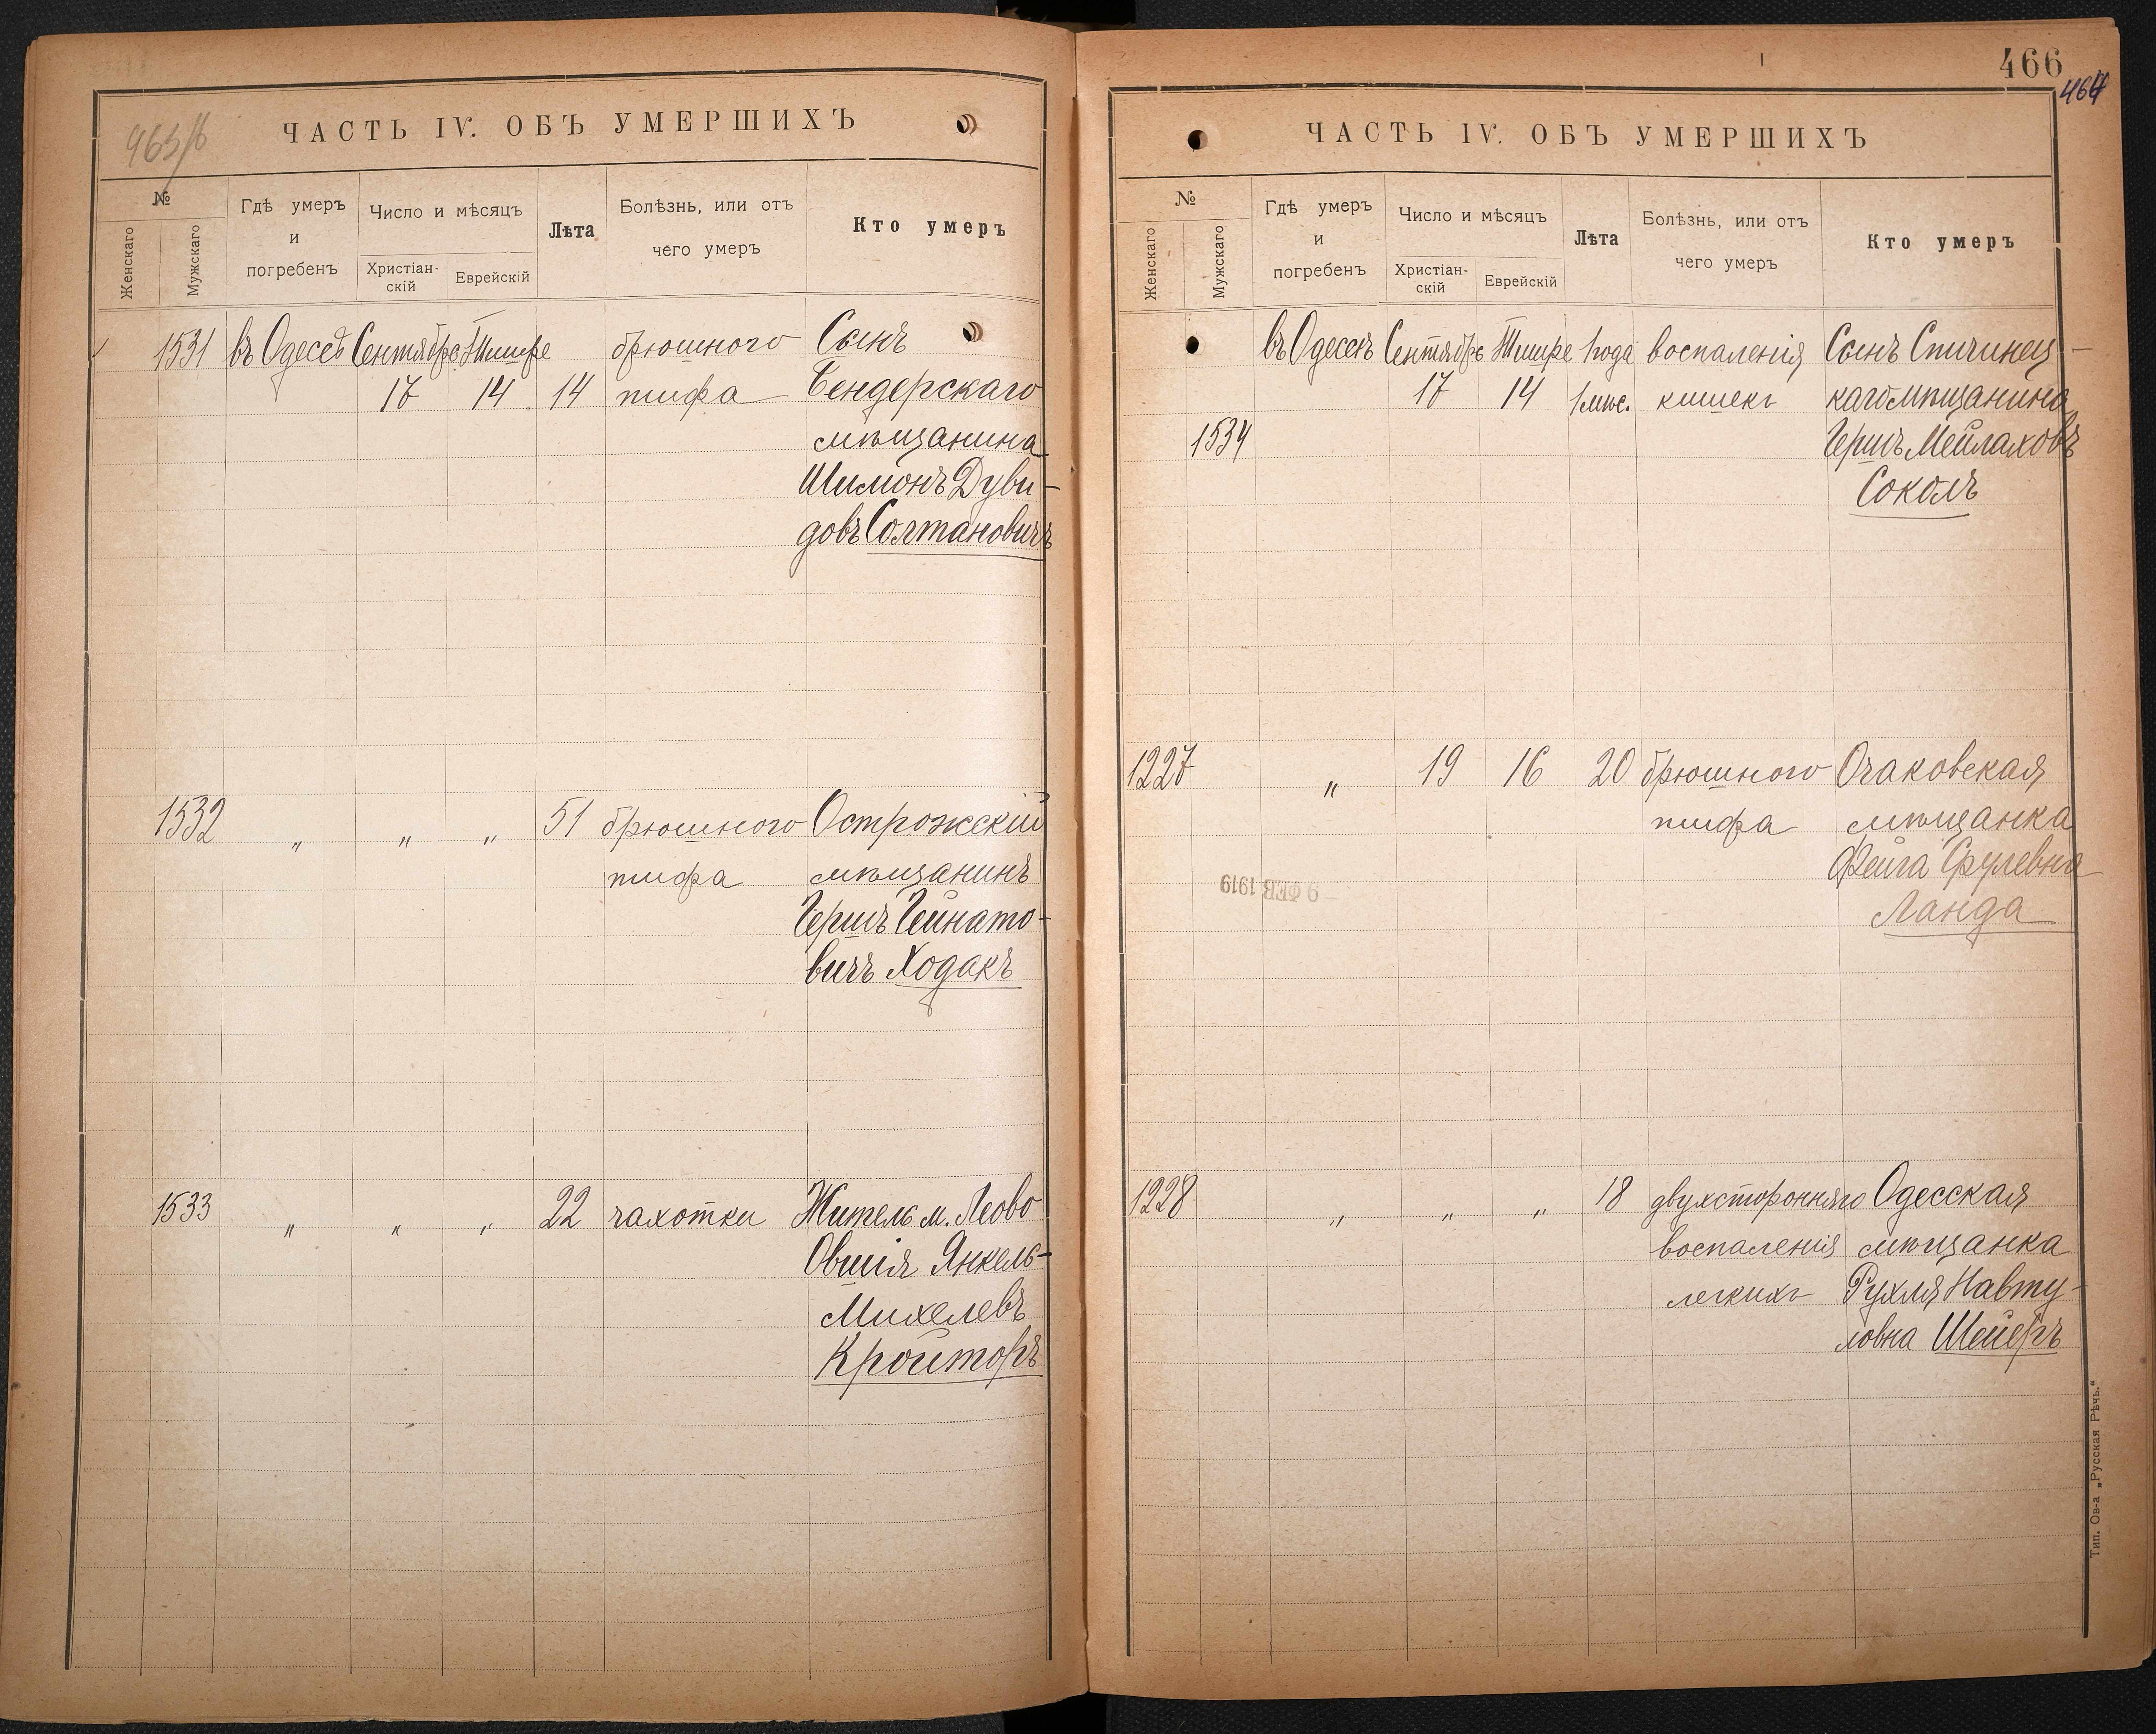 463/б
ЧАСТЬ IV. ОБЪ УМЕРШИХЪ
№
Женскаго
Мужскаго
Гдѣ умеръ
и
погребенъ
Число и мѣсяцъ
Христіан-
скій
Еврейскій
Лѣта
Болѣзнь, или отъ
чего умеръ
Кто умеръ
1531 въ Одессѣ Сентябре Тишре брюшного Сынъ
17 14 14 тифа Бендерскаго
мѣщанина
Шимонъ Дуви-
довъ Солтановичъ
1532 „ „ „ 51 брюшного Острожскій
тифа мѣщанинъ
Гершъ Гейнато-
вичъ Ходакъ
1533 „ „ „ 22 чахотки Житель м. Леово
Овшія Янкель-
Михелевъ
Кройторъ
466
464
ЧАСТЬ IV. ОБЪ УМЕРШИХЪ
№
Женскаго
Мужскаго
Гдѣ умеръ
и
погребенъ
Число и мѣсяцъ
Христіан-
скій
Еврейскій
Лѣта
Болѣзнь, или отъ
чего умеръ
Кто умеръ
въ Одессѣ Сентябре Тишре 1 года воспаленія Сынъ Спичинец-
17 14 1 мѣс. кишекъ каго мѣщанина
1534 Гершъ Мейлаховъ
Соколъ
1227 „ 19 16 20 брюшного Очаковская
тифа мѣщанка
Фейга Срулевна
Ланда
9 ФЕВ 1919
1228 „ „ „ 18 двухсторонняго Одесская
воспаленія мѣщанка
легкихъ Рухля Навту-
ловна Шейеръ
Тип. Ов-а „Русская Рѣчь.“